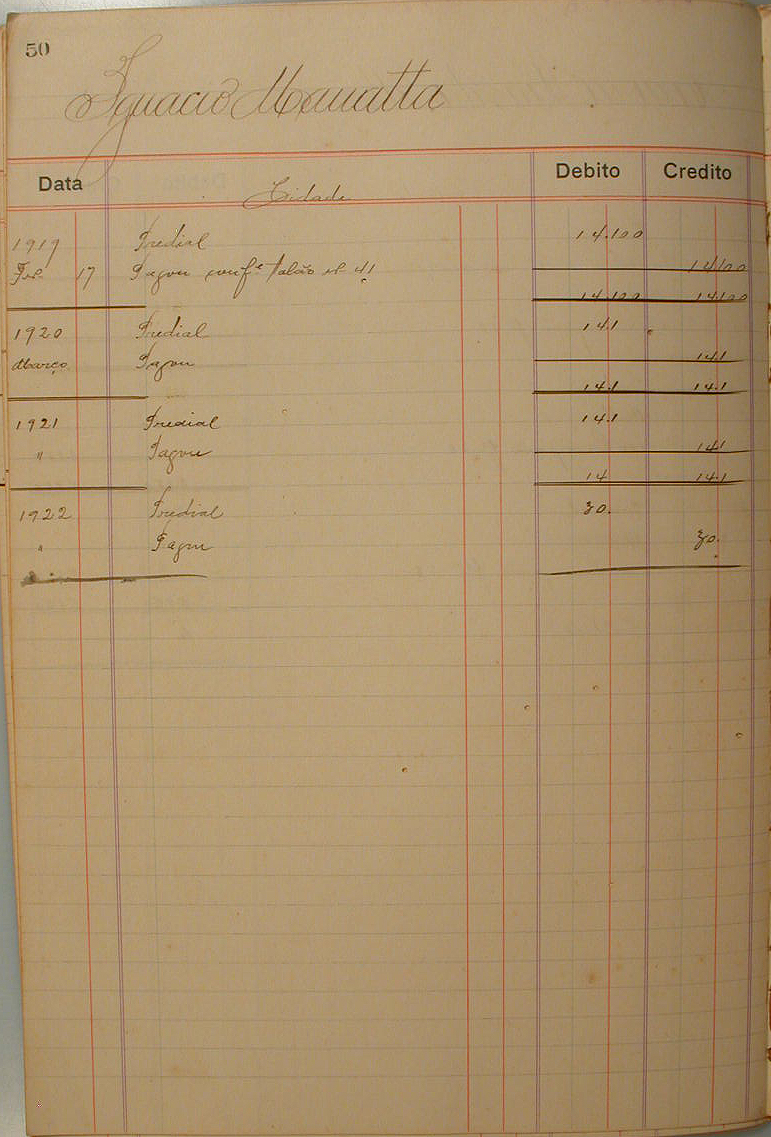 50
Ignacio Manatta
Data Cidade Debito Credito
1919 Predial 14.100
Fev. 17 Pagou conf.e talão nº 41 14.100
14.100 14.100
1920 Predial 141
Março Pagou 141
141 141
1921 Predial 141
" Pagou 141
14 141
1922 Predial 30.
" Pagou 30.